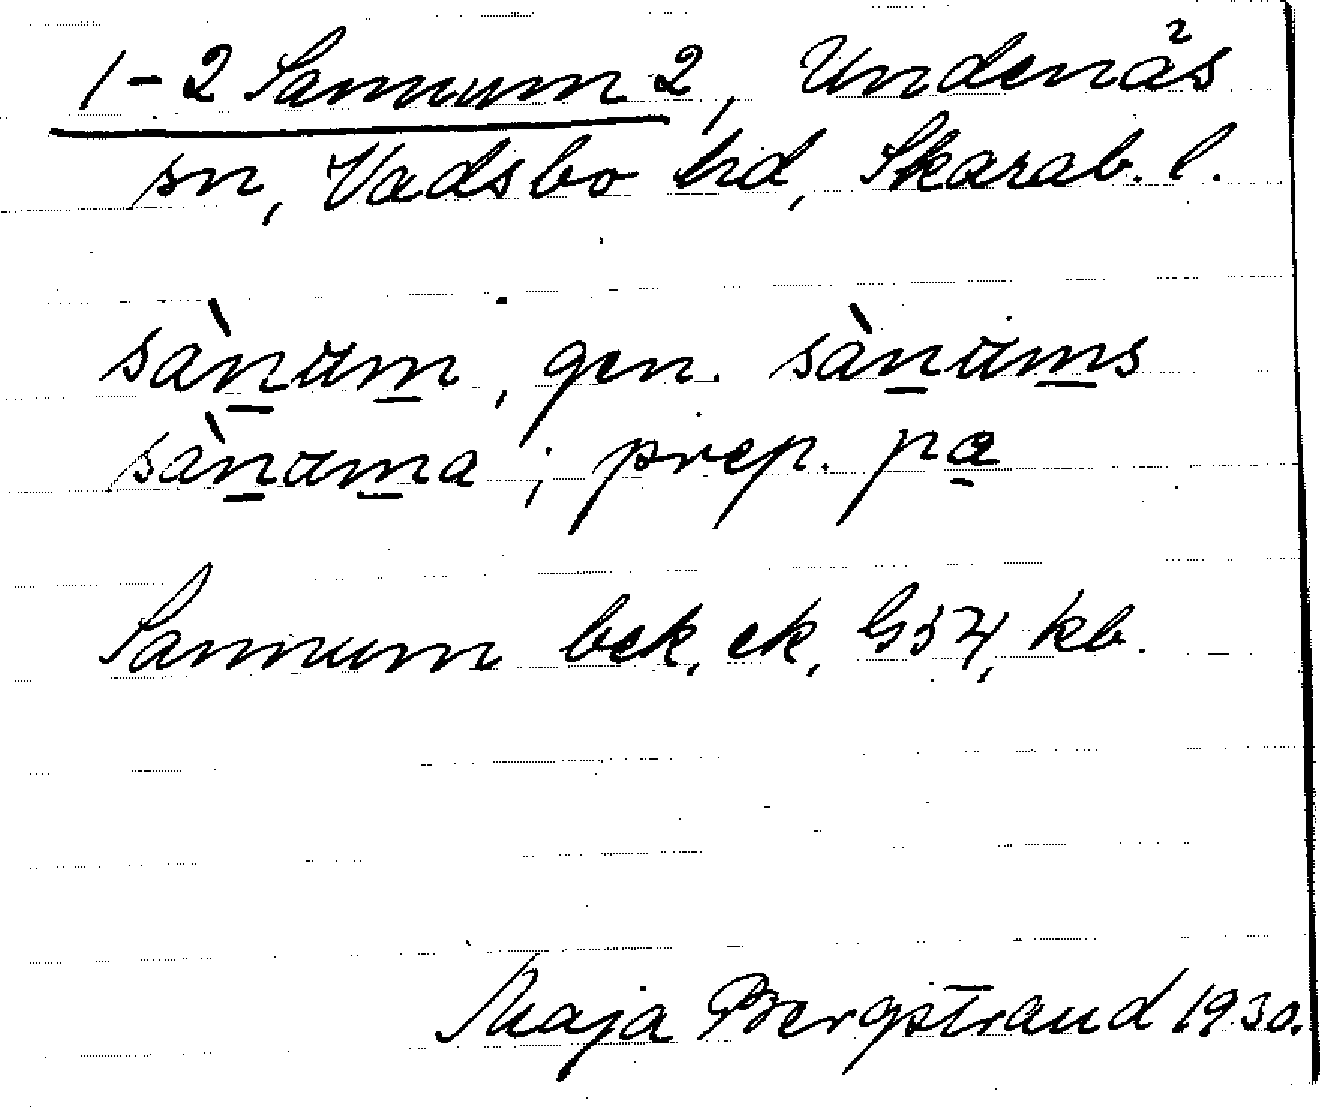 1-2 Sannum 2, Undenäs
sn, Vadsbo hd, Skarab. l.
sàn̲um̲, gen. sàn̲um̲s
sàn̲um̲a; prep. pa̲
Sannum bek, ek, G57, kb.
Maja Bergstrand 1930.